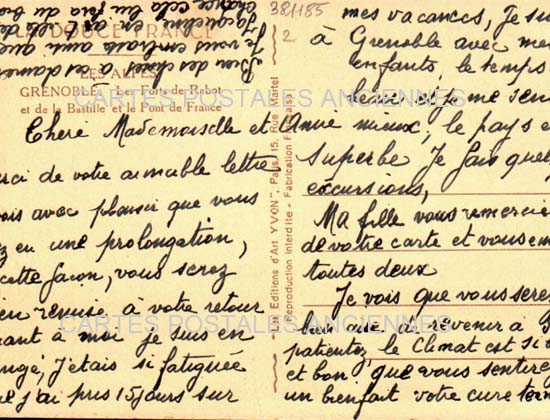 LA DOUCE FRANCE
LES ALPES
GRENOBLE - Les Forts de Rabot
et de la Bastille et le Pont de France
Chere Mademoiselle et Amie
rci de votre aimable lettre
ois avec plaisir que vous
ez en une prolongation,
cette façon, vous serez
ien remise à votre retour
uant à moi je suis en
ongé, j'etais si fatiguée
e j'ai pris 15 jours sur
Les Editions d'Art YVON", Paris, 15, Rue Martel
Reproduction interdite - Fabrication Française
381185
2
mes vacances, je sui
à Grenoble avec mes
enfants, le temps
beau et je me sen
mieux, le pays e
superbe Je fais quel
excursions,
Ma fille vous remercie
de votre carte et vous em
toutes deux
Je vois que vous sere
bien que de revenir à P
patientez, le Climat est si
et bon que vous sentire
un bienfait votre cure ter
Bien des choses à ces dames
Je vous embrasse ainsi que
Jacqueline
CARTES POSTALES ANCIENNES
CARTES POSTALES ANCIENNES